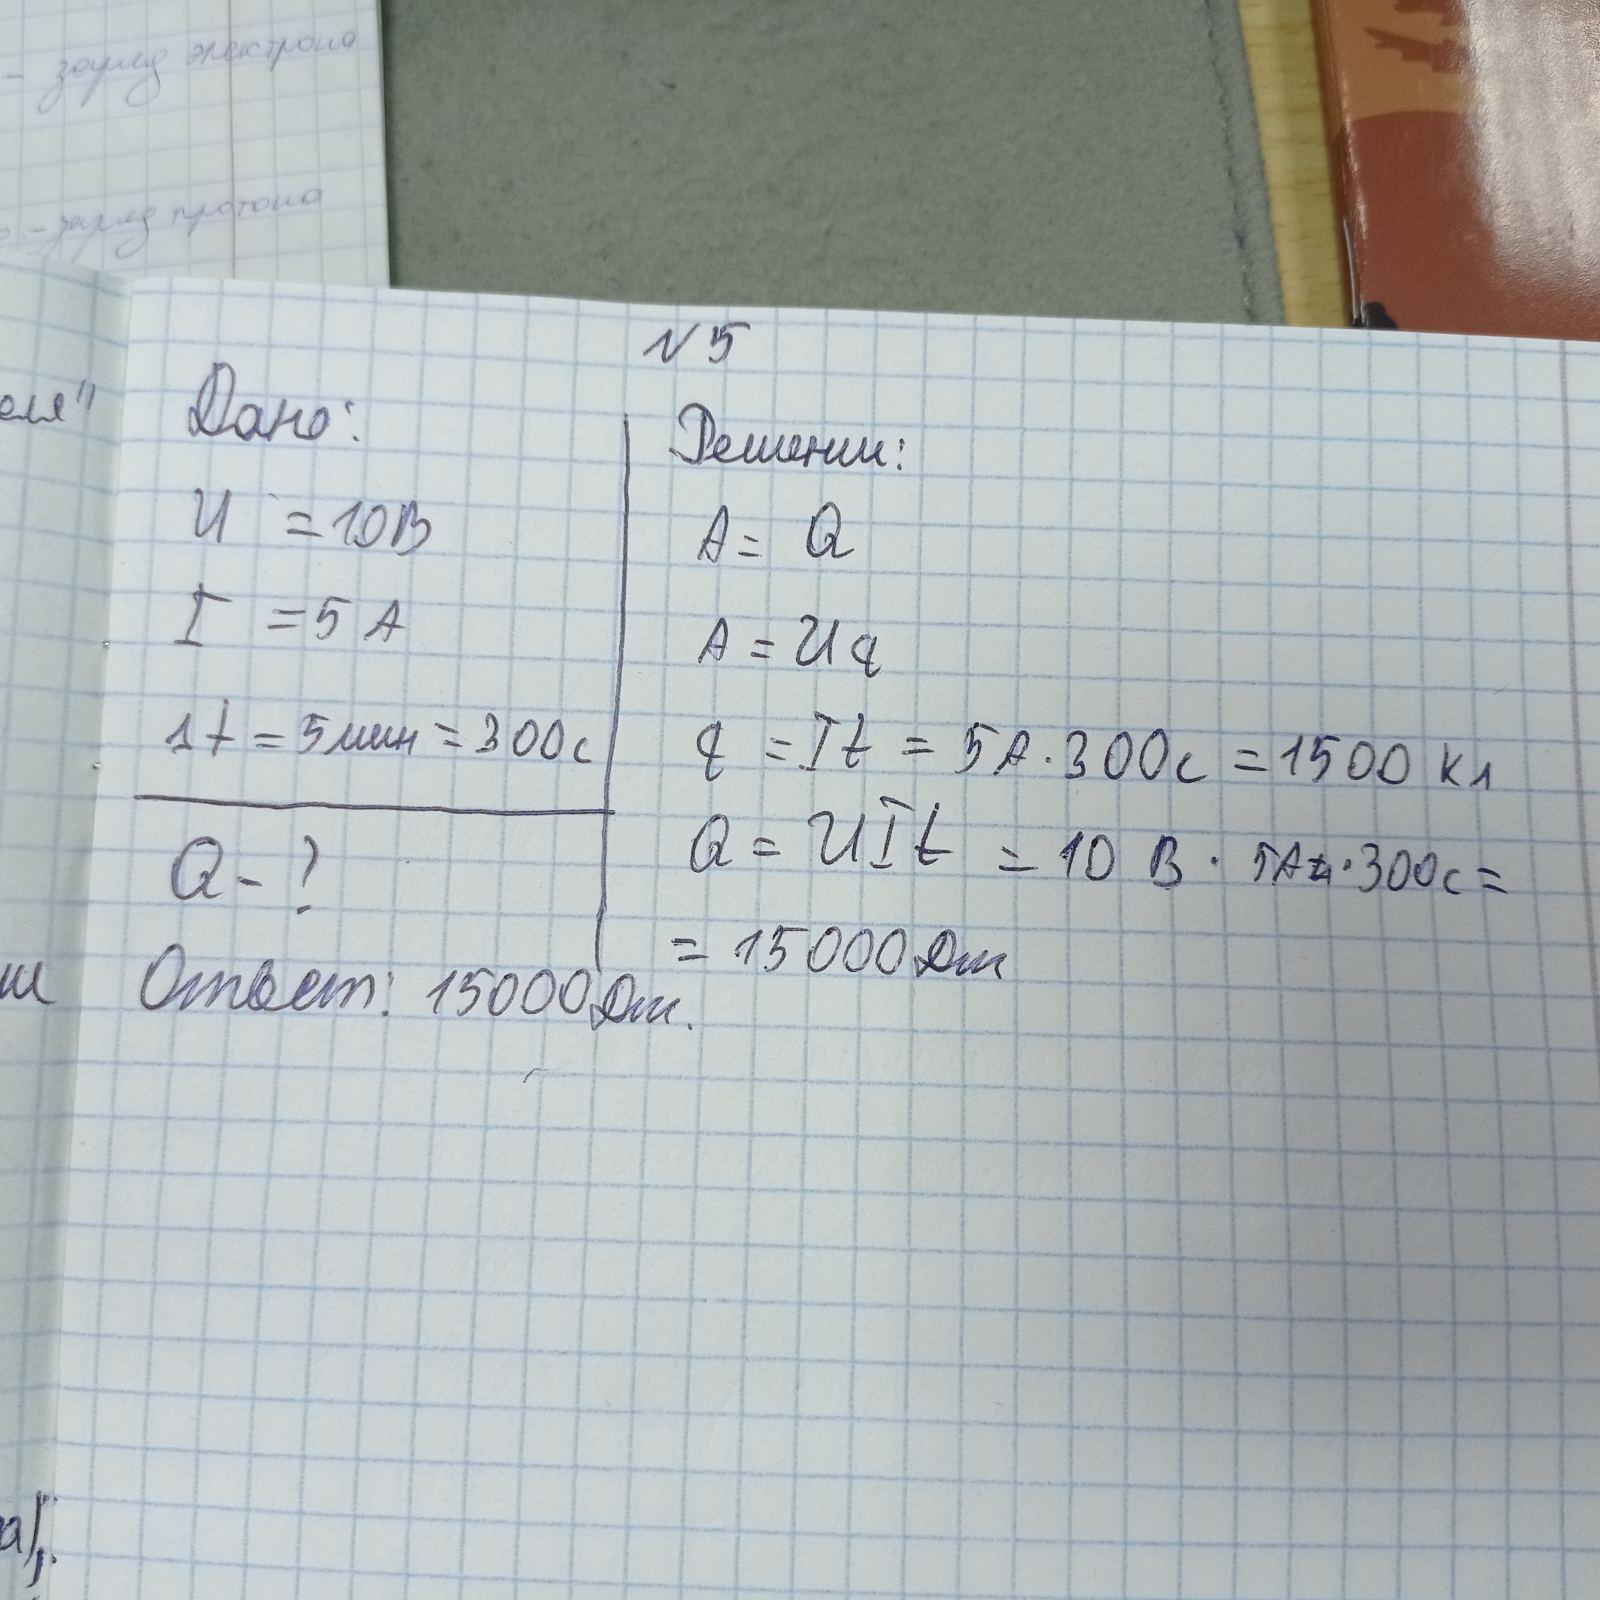 - заряд электрона
- заряд протона
№5
Дано:
U = 10В
I = 5 А
1t = 5мин = 300с
Q - ?
Решении:
A = Q
A = Uq
q = It = 5А · 300с = 1500 Кл
Q = UIt = 10 В · 5А · 300с =
= 15000Дж
Ответ: 15000Дж.